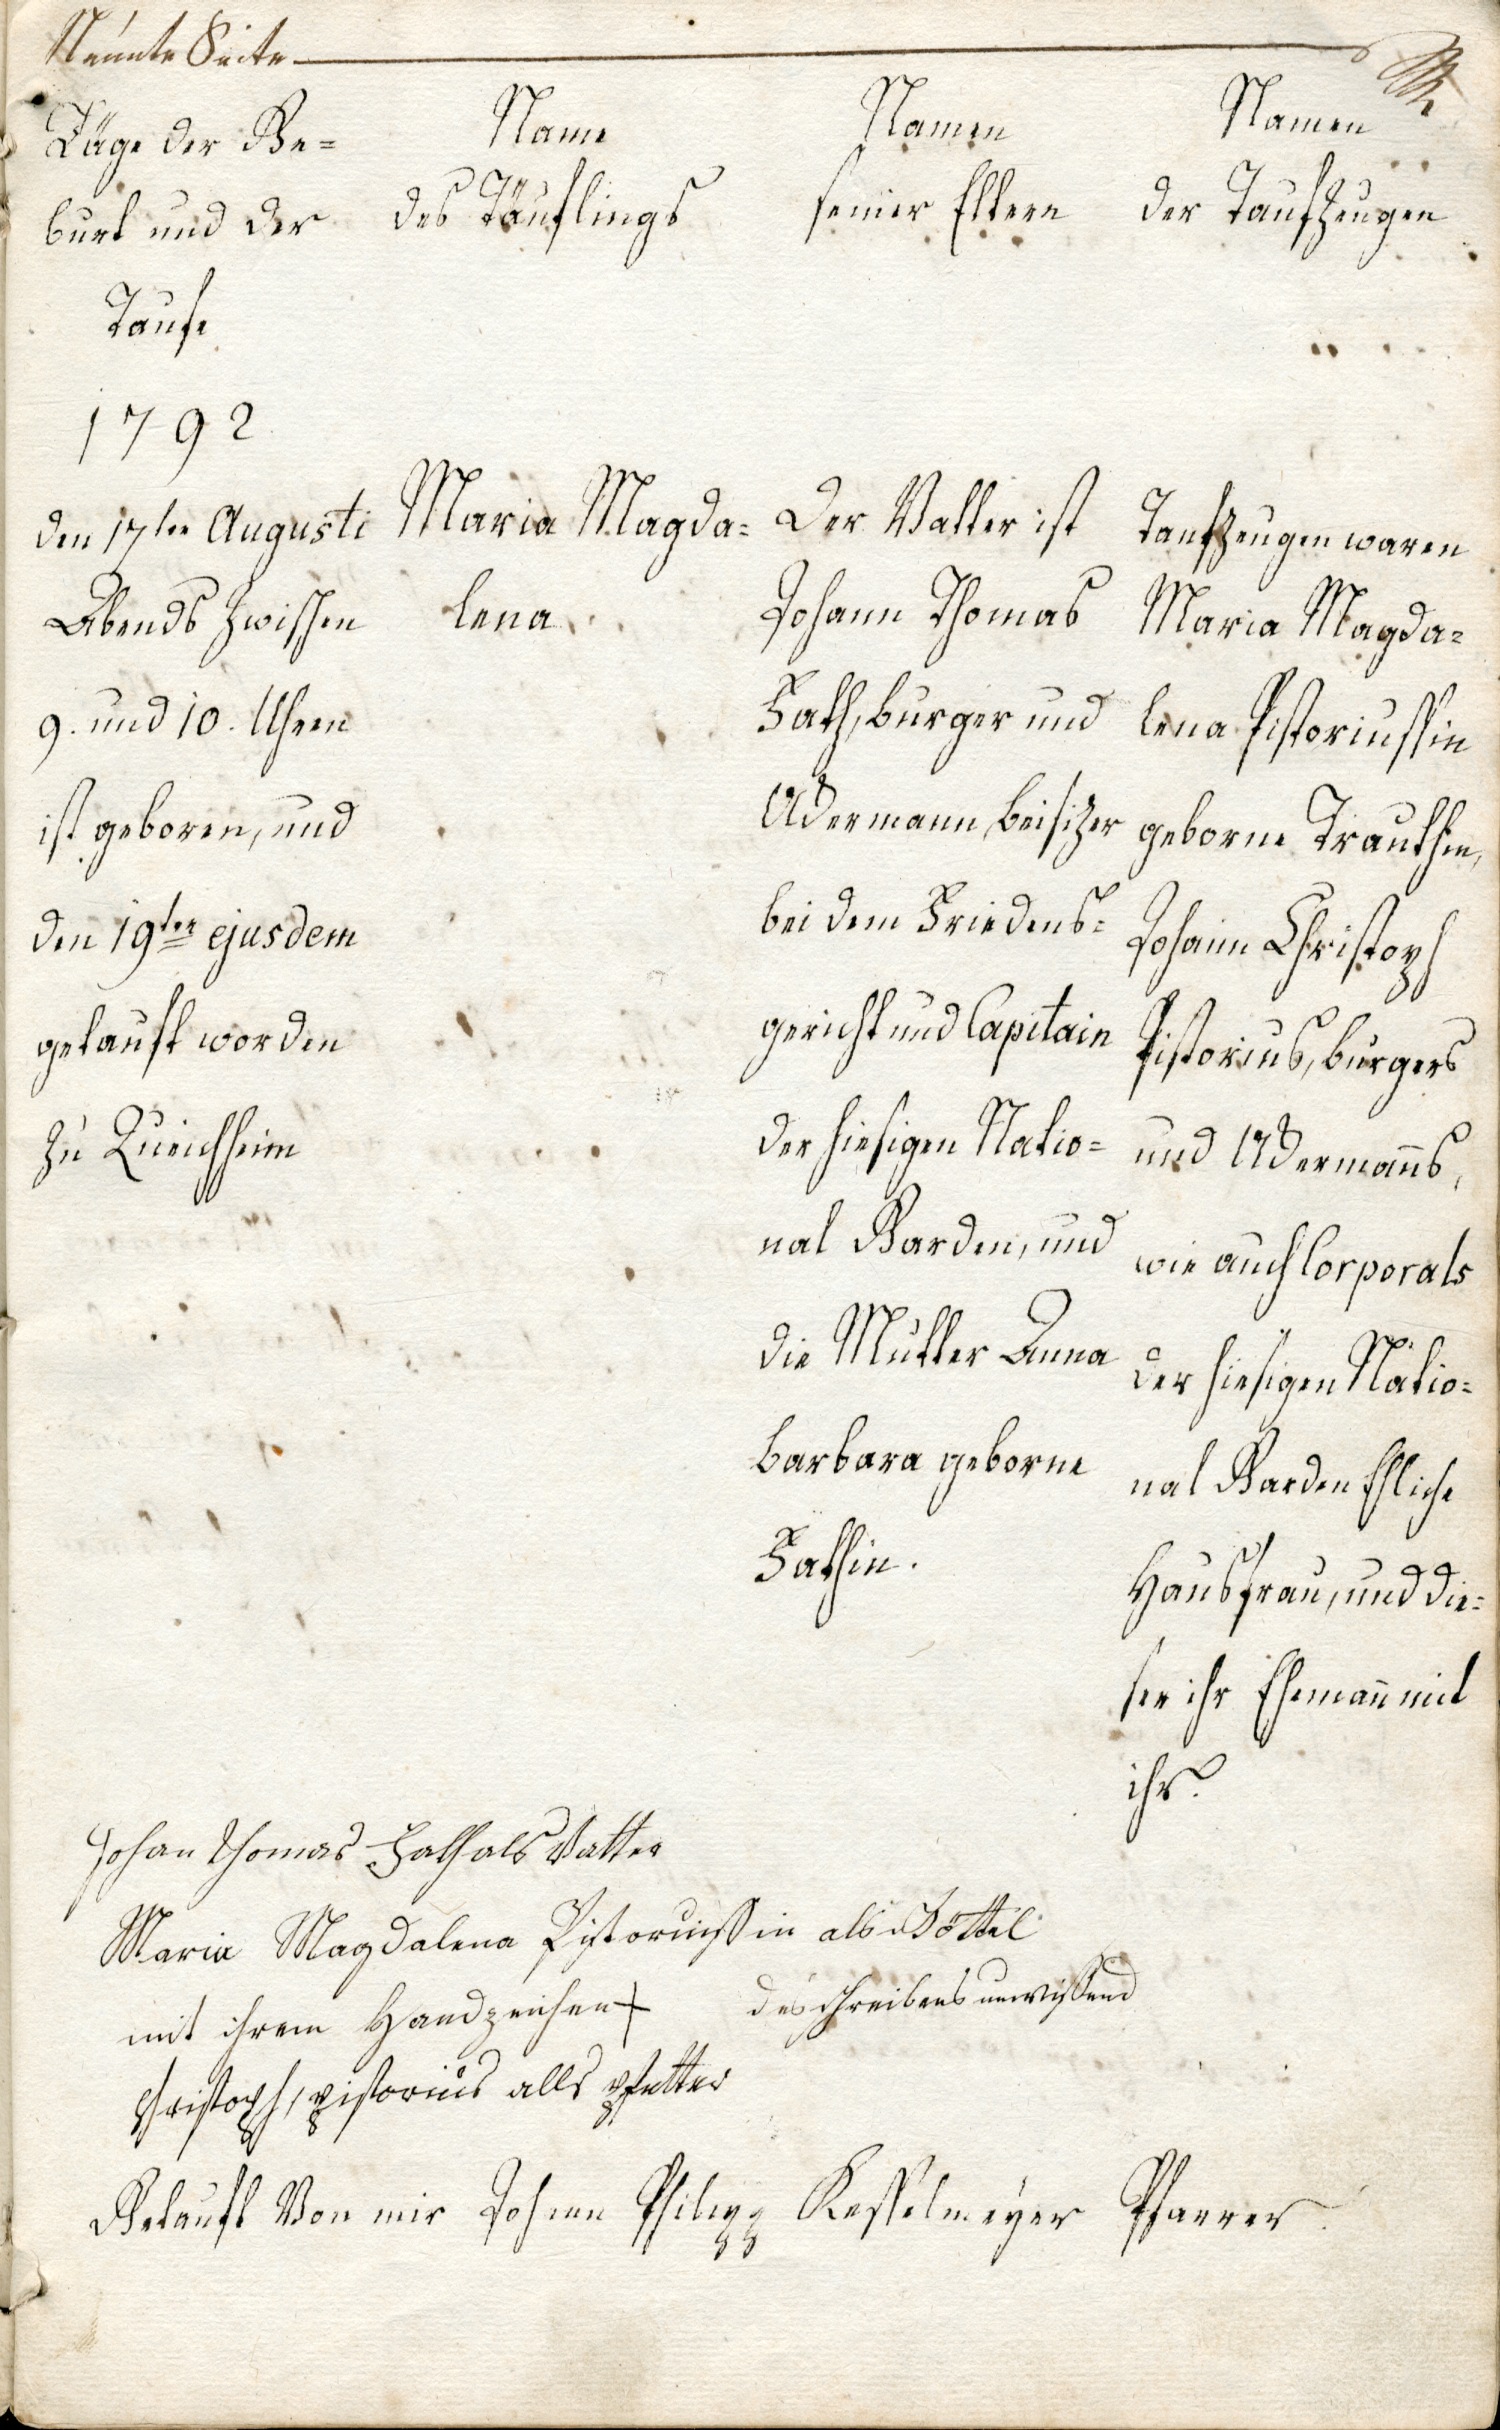 Neunte Seite
Täge der Ge=
burt und der
Taufe
Name
des Täuflings
Namen
seiner Eltern
Namen
der Taufzeugen
1792
den 17ten Augusti
Abends zwischen
9. und 10. Uhren
ist geboren, und
den 19ten ejusdem
getauft worden
zu Queichheim
Maria Magda=
lena
Der Vatter ist
Johann Thomas
Fath, burger und
Ackermann, beisizer
bei dem Friedens=
gericht und Capitain
der hiesigen Natio=
nal Garden, und
die Mutter Anna
barbara geborne
Fathin.
Taufzeugen waren
Maria Magda=
lena Pistoriussin
geborne Trauthin,
Johann Christoph
Pistorius, burgers
und Ackermanns,
wie auch Corporals
der hiesigen Natio=
nal Garden Ehliche
Hausfrau, und die=
ser ihr Ehemann mit
ihr.
Johan Thomas Fath als Vatter
Maria Magdalena Pistoriussin als Göttel
mit ihrem Handzeichen + des schreibens unwissend
Christoph, pistorius alls pfetter
Getauft Von mir Johann Philipp Kesselmeyer Pfarrer